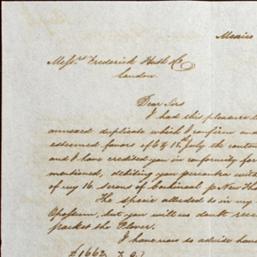 Mexico
Mess.rs Frederick Huth & Co
London.
Dear Sirs
I had this pleasure
annexed duplicate which I confirm and
esteemed favors of 6 & 15th July the contents
and I have credited you in conformity for
mentioned, debiting your
of my 16. Serons of Cochineal p New
The specie alluded to in my
but you will no doubt rece
packet the Plover.
I have now to advise having
£1662. 7. 9.